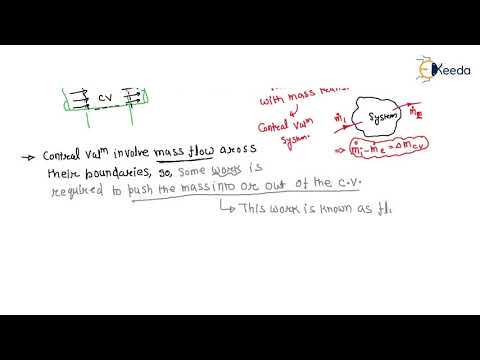 Keeda
CV
with mass
Control Valᵐ
System.
System
ṁ_i
ṁ_e
⇒ ṁ_i - ṁ_e = Δm_cv
→ Control Valᵐ involve mass flow aross
their boundaries, so, some work is
required to push the mass into or out of the c.v.
↳ This work is known as fl